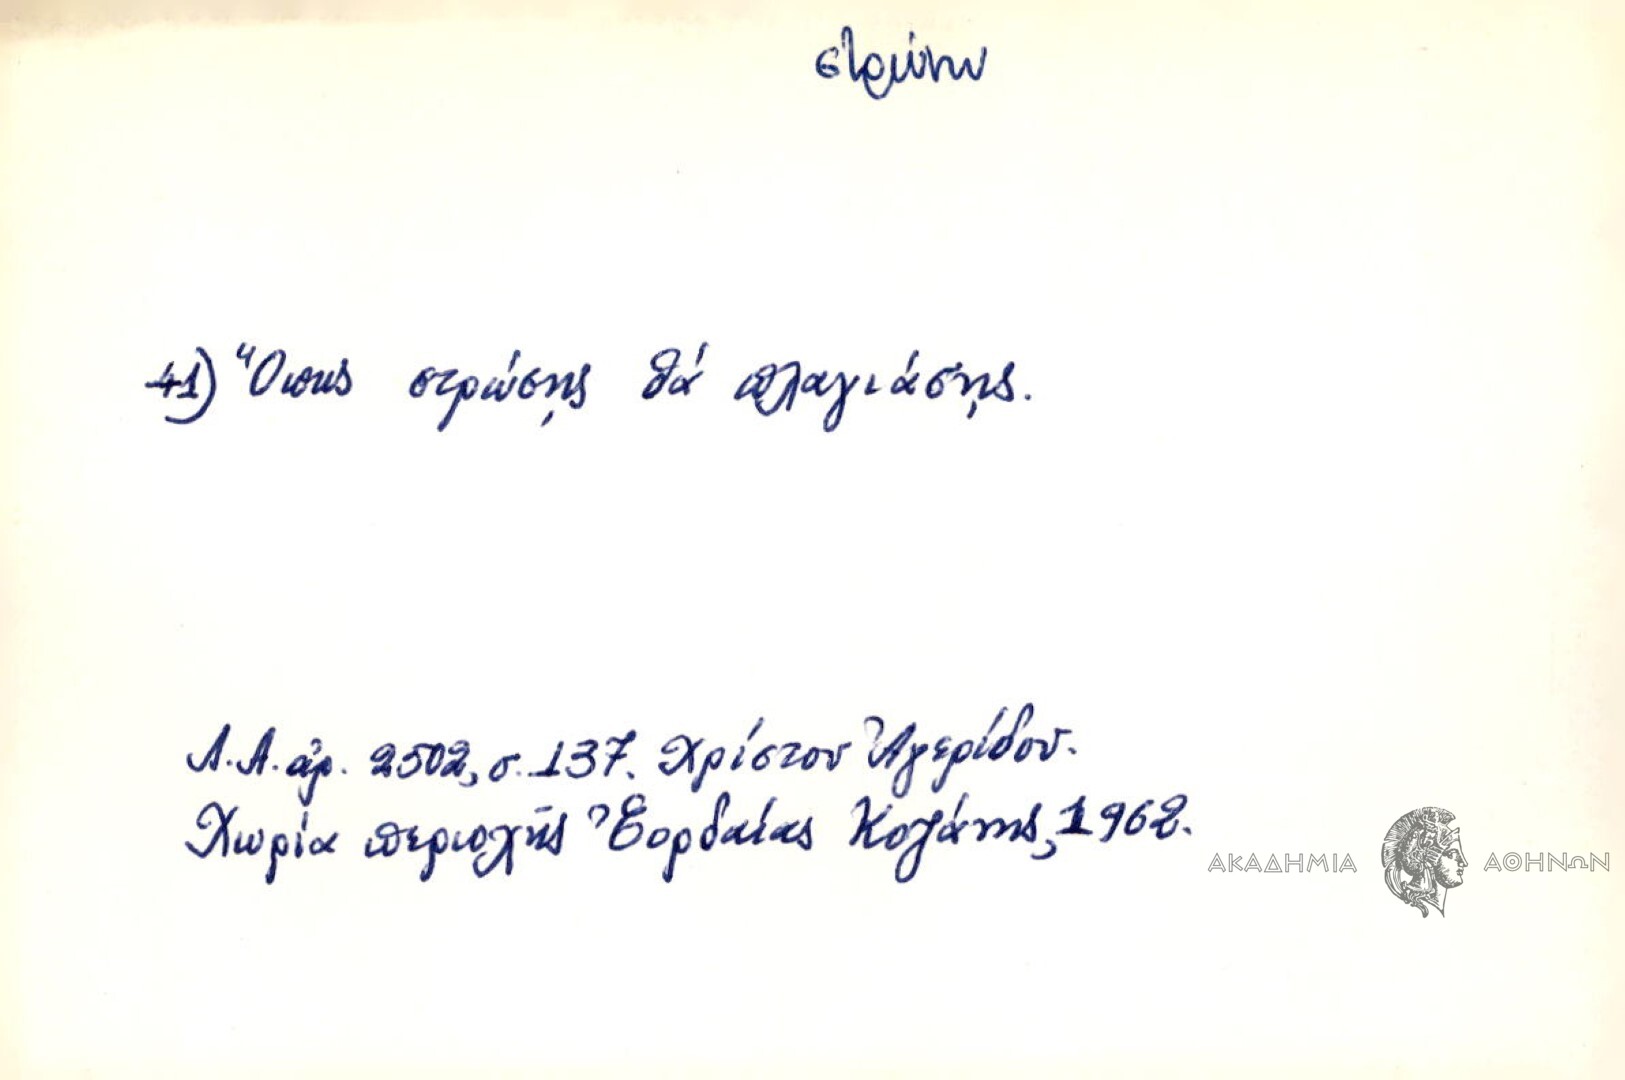 στρώνω
41) Ὅπως στρώσῃς θά πλαγιάσῃς.
Λ.Α. ἀρ. 2502, σ. 137. Χρίστου Ἀγερίδου.
Χωρία περιοχῆς Ἑορδαίας Κοζάνης, 1962.
ΑΚΑΔΗΜΙΑ ΑΘΗΝΩΝ